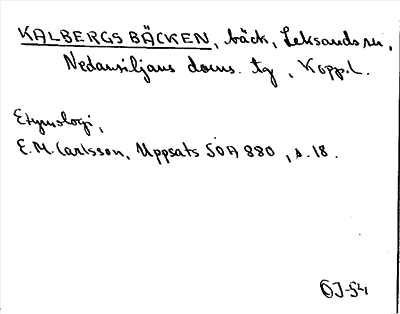 KALBERGSBÄCKEN, bäck, Leksands sn,
Nedansiljans doms. tg, Kopp.l.
Etymologi,
E.M. Carlsson, Uppsats SOA 880, s. 18.
ÖJ-54